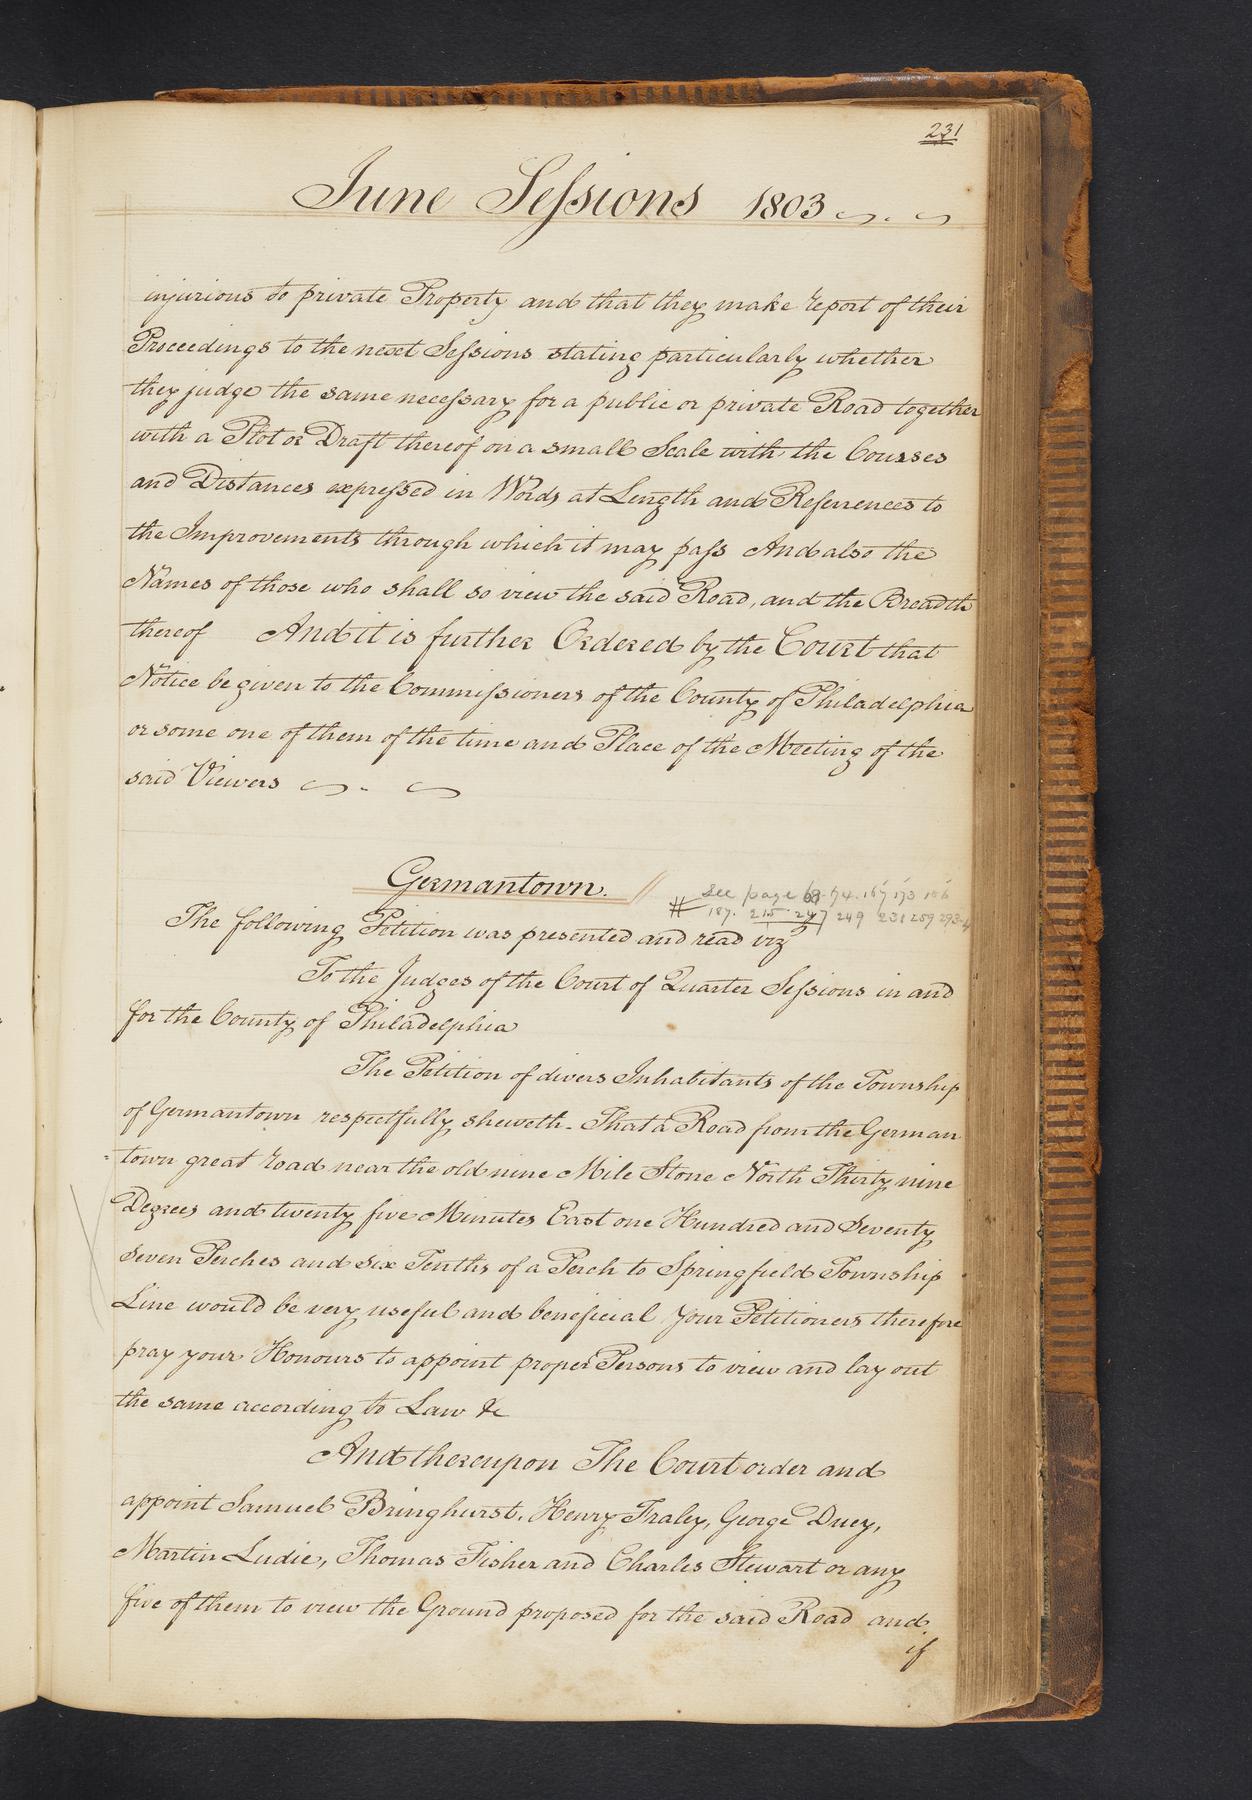 231
June Sessions 1803
injurious to private Property and that they make report of their
Proceedings to the next Sessions stating particularly whether
they judge the same necessary for a public or private Road together
with a Plot or Draft thereof on a small Scale with the Courses
and Distances expressed in Words at Length and References to
the Improvements through which it may pass And also the
Names of those who shall so view the said Road, and the Breadth
thereof And it is further Ordered by the Court that
Notice be given to the Commissioners of the County of Philadelphia
or some one of them of the time and Place of the Meeting of the
said Viewers
Germantown.
See page 68. 74. 167 173 186
187. 215. 247 249 231 259 293-4
The following Petition was presented and read viz
To the Judges of the Court of Quarter Sessions in and
for the County of Philadelphia
The Petition of divers Inhabitants of the Township
of Germantown respectfully sheweth. That a Road from the German
= town great road near the old nine Mile Stone North Thirty nine
Degrees and twenty five Minutes East one Hundred and Seventy
seven Perches and six Tenths of a Perch to Springfield Township
Line would be very useful and beneficial Your Petitioners therefore
pray your Honours to appoint proper Persons to view and lay out
the same according to Law &c
And thereupon The Court order and
appoint Samuel Bringhurst, Henry Fraley, George Duey,
Martin Ludie, Thomas Fisher and Charles Stewart or any
five of them to view the Ground proposed for the said Road and
if